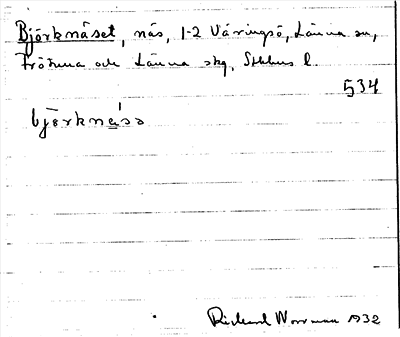 Björknäset, näs, 1-2 Väringsö, Länna sn,
Frötuna och Länna skg, Sthlms l.
534
björknäss
Rickard Norrman 1932